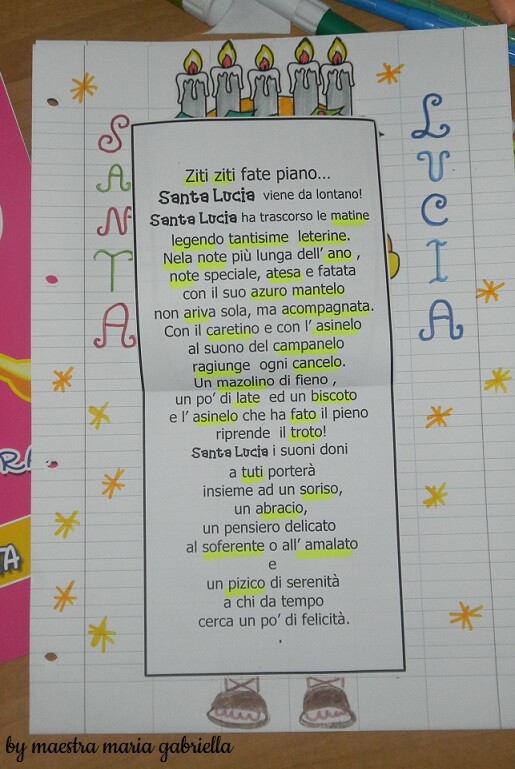 SANTA
LUCIA
Ziti ziti fate piano...
Santa Lucia viene da lontano!
Santa Lucia ha trascorso le matine
legendo tantisime leterine.
Nela note più lunga dell' ano ,
note speciale, atesa e fatata
con il suo azuro mantelo
non ariva sola, ma acompagnata.
Con il caretino e con l' asinelo
al suono del campanelo
ragiunge ogni cancelo.
Un mazolino di fieno ,
un po' di late ed un biscoto
e l' asinelo che ha fato il pieno
riprende il troto!
Santa Lucia i suoni doni
a tuti porterà
insieme ad un soriso,
un abracio,
un pensiero delicato
al soferente o all' amalato
e
un pizico di serenità
a chi da tempo
cerca un po' di felicità.
by maestra maria gabriella